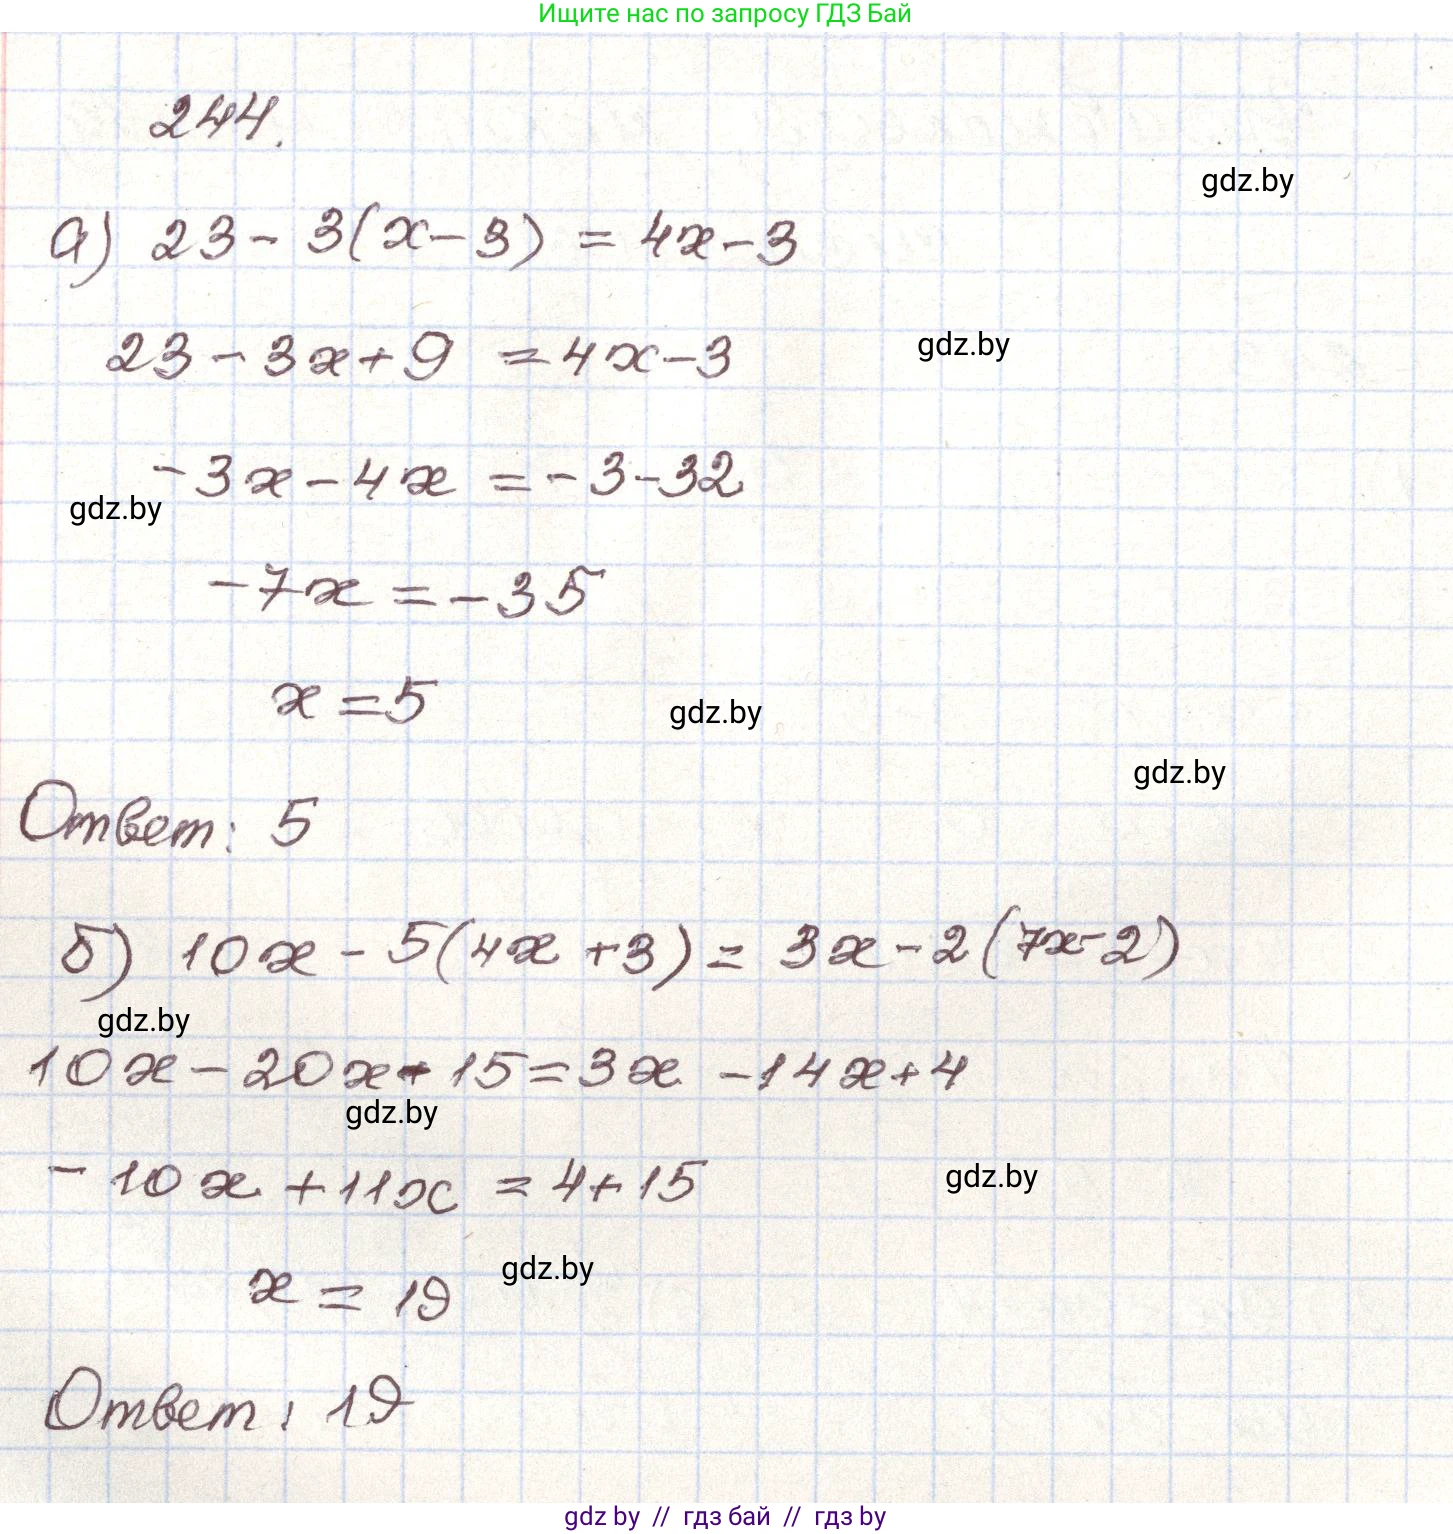 Ищите нас по запросу ГДЗ Бай
244.
gdz.by
а) 23 - 3(x - 3) = 4x - 3
23 - 3x + 9 = 4x - 3
gdz.by
-3x - 4x = -3 - 32
gdz.by
-7x = -35
x = 5
gdz.by
gdz.by
Ответ: 5
б) 10x - 5(4x + 3) = 3x - 2(7x - 2)
gdz.by
10x - 20x - 15 = 3x - 14x + 4
gdz.by
-10x + 11x = 4 + 15
gdz.by
gdz.by
x = 19
Ответ: 19
gdz by // гдз бай // гдз by